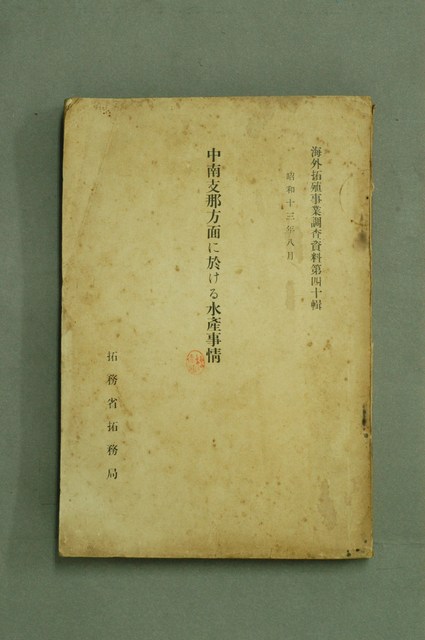 海外拓殖事業調査資料第四十輯
昭和十三年八月
中南支那方面に於ける水産事情
拓務省拓務局